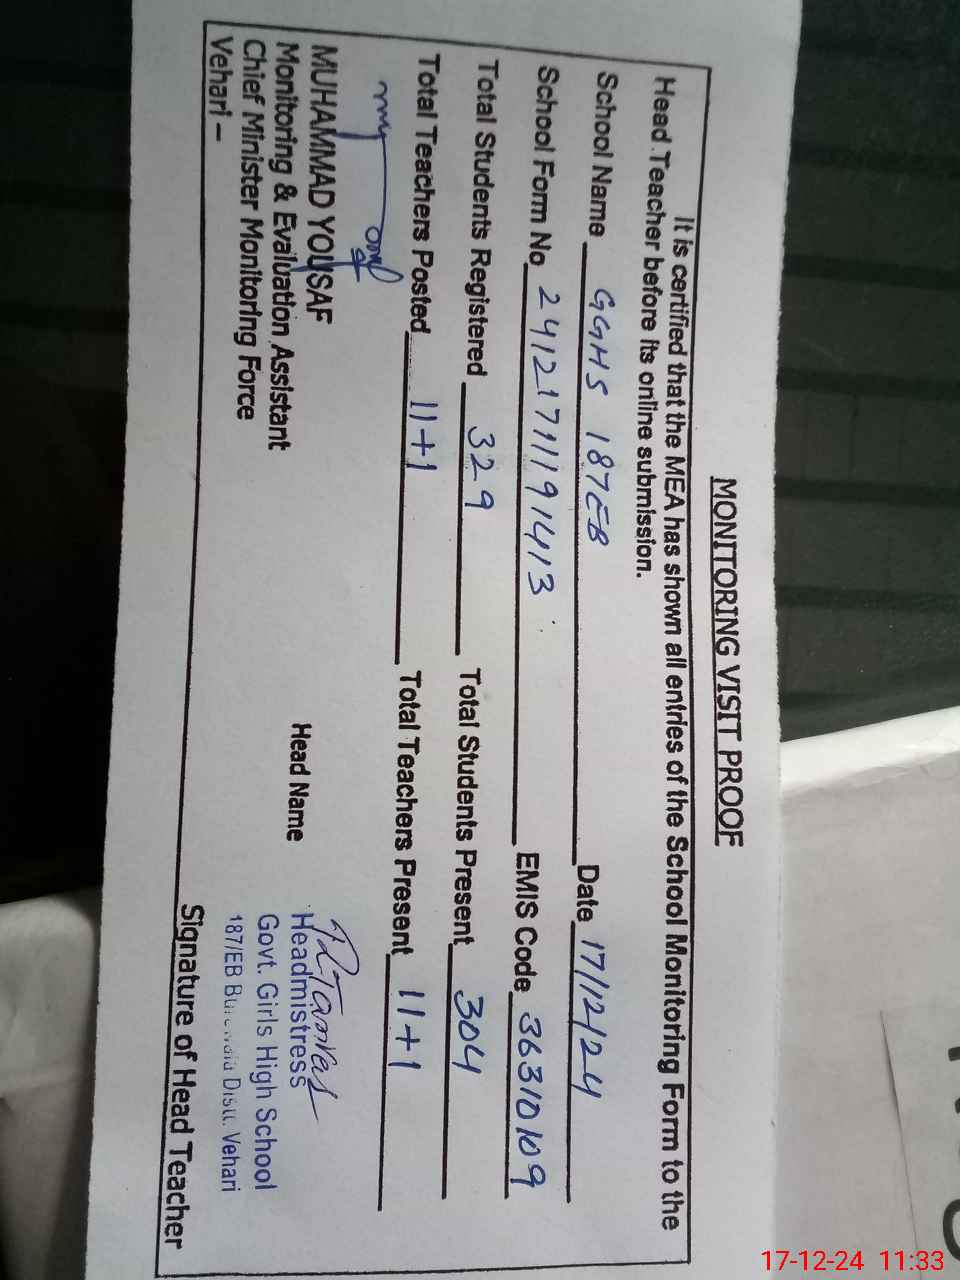 MONITORING VISIT PROOF
It is certified that the MEA has shown all entries of the School Monitoring Form to the
Head Teacher before its online submission.
School Name GGHS 187EB Date 17/12/24
School Form No. 24121711191413 EMIS Code 36310109
Total Students Registered 329 Total Students Present 304
Total Teachers Posted 11+1 Total Teachers Present 11+1
MUHAMMAD YOUSAF
Monitoring & Evaluation Assistant
Chief Minister Monitoring Force
Vehari -
Head Name
Headmistress
Govt. Girls High School
187/EB Distt. Vehari
Signature of Head Teacher
17-12-24 11:33